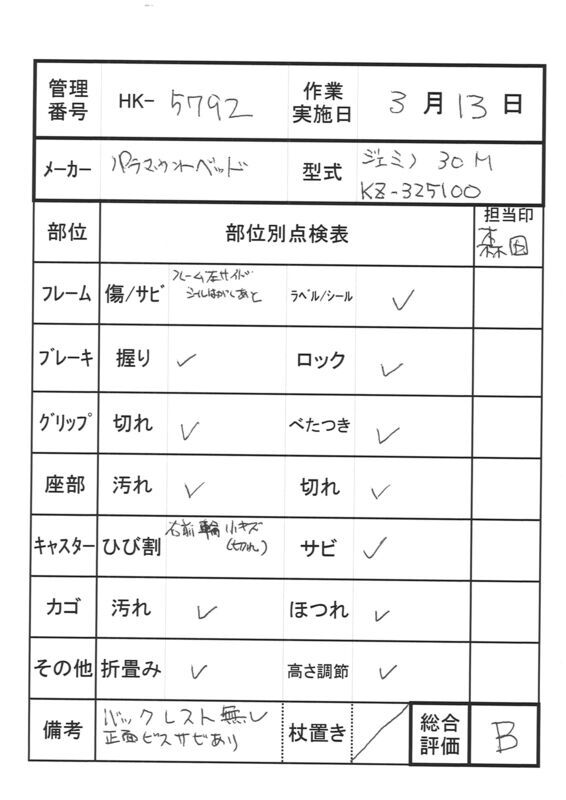 管理番号 HK- 5792 作業実施日 3月13日
メーカー パラマウントベッド 型式 ジェミノ 30 M
KZ-325100
部位 部位別点検表 担当印
森田
フレーム 傷/サビ フレーム左サイド ラベル/シール ✓
シールはがしあと
ブレーキ 握り ✓ ロック ✓
グリップ 切れ ✓ べたつき ✓
座部 汚れ ✓ 切れ ✓
キャスター ひび割 右前輪 小キズ サビ ✓
(切れ)
カゴ 汚れ ✓ ほつれ ✓
その他 折畳み ✓ 高さ調節 ✓
備考 バックレスト無し 杖置き / 総合評価 B
正面ビスサビあり